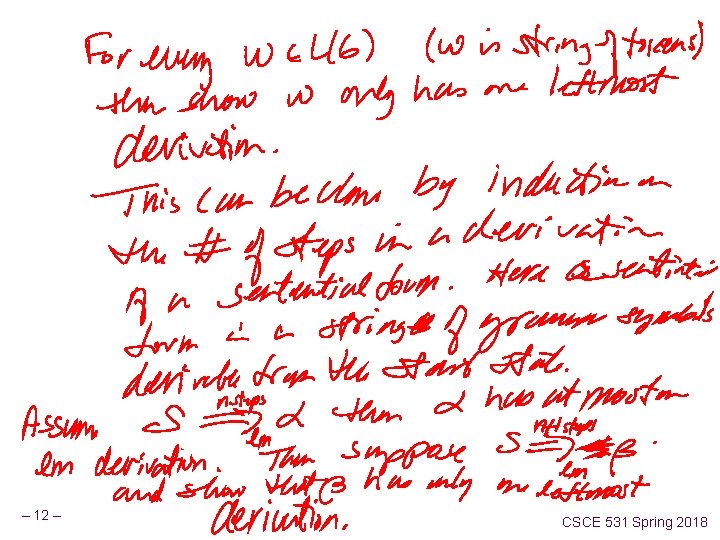 For every w ε L(G) (w is string of tokens)
then show w only has one leftmost
derivition.
This can be done by induction on
the # of steps in a derivation
of a sentential form. Here a sentential
form is a string of grammar symbols
derivable from the start state.
Assum S ⇒ n steps lm α then α has at most on
lm derivation. Then suppose S ⇒ n+1 steps lm β.
and show that β has only one leftmost
derivation.
– 12 –
CSCE 531 Spring 2018